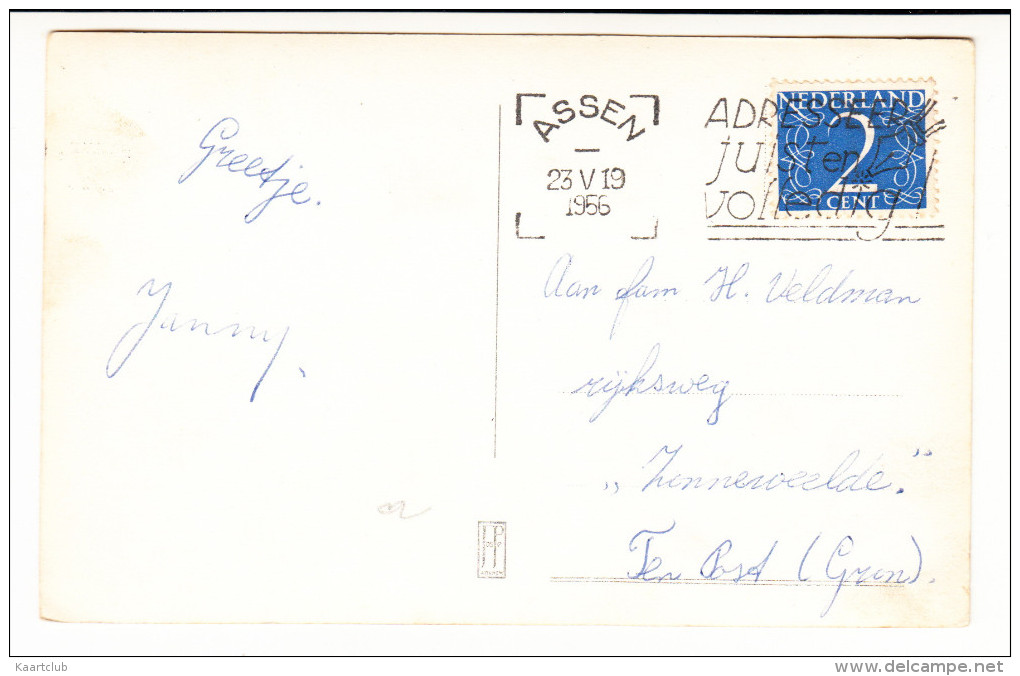 Greetje.
Janny.
ASSEN
23 V 19
1956
ADRESSEER
juist en
volledig
NEDERLAND
2
CENT
Aan fam H. Veldman
rijksweg
„Zonneweelde."
Ten Post (Gron).
Kaartclub
www.delcampe.net